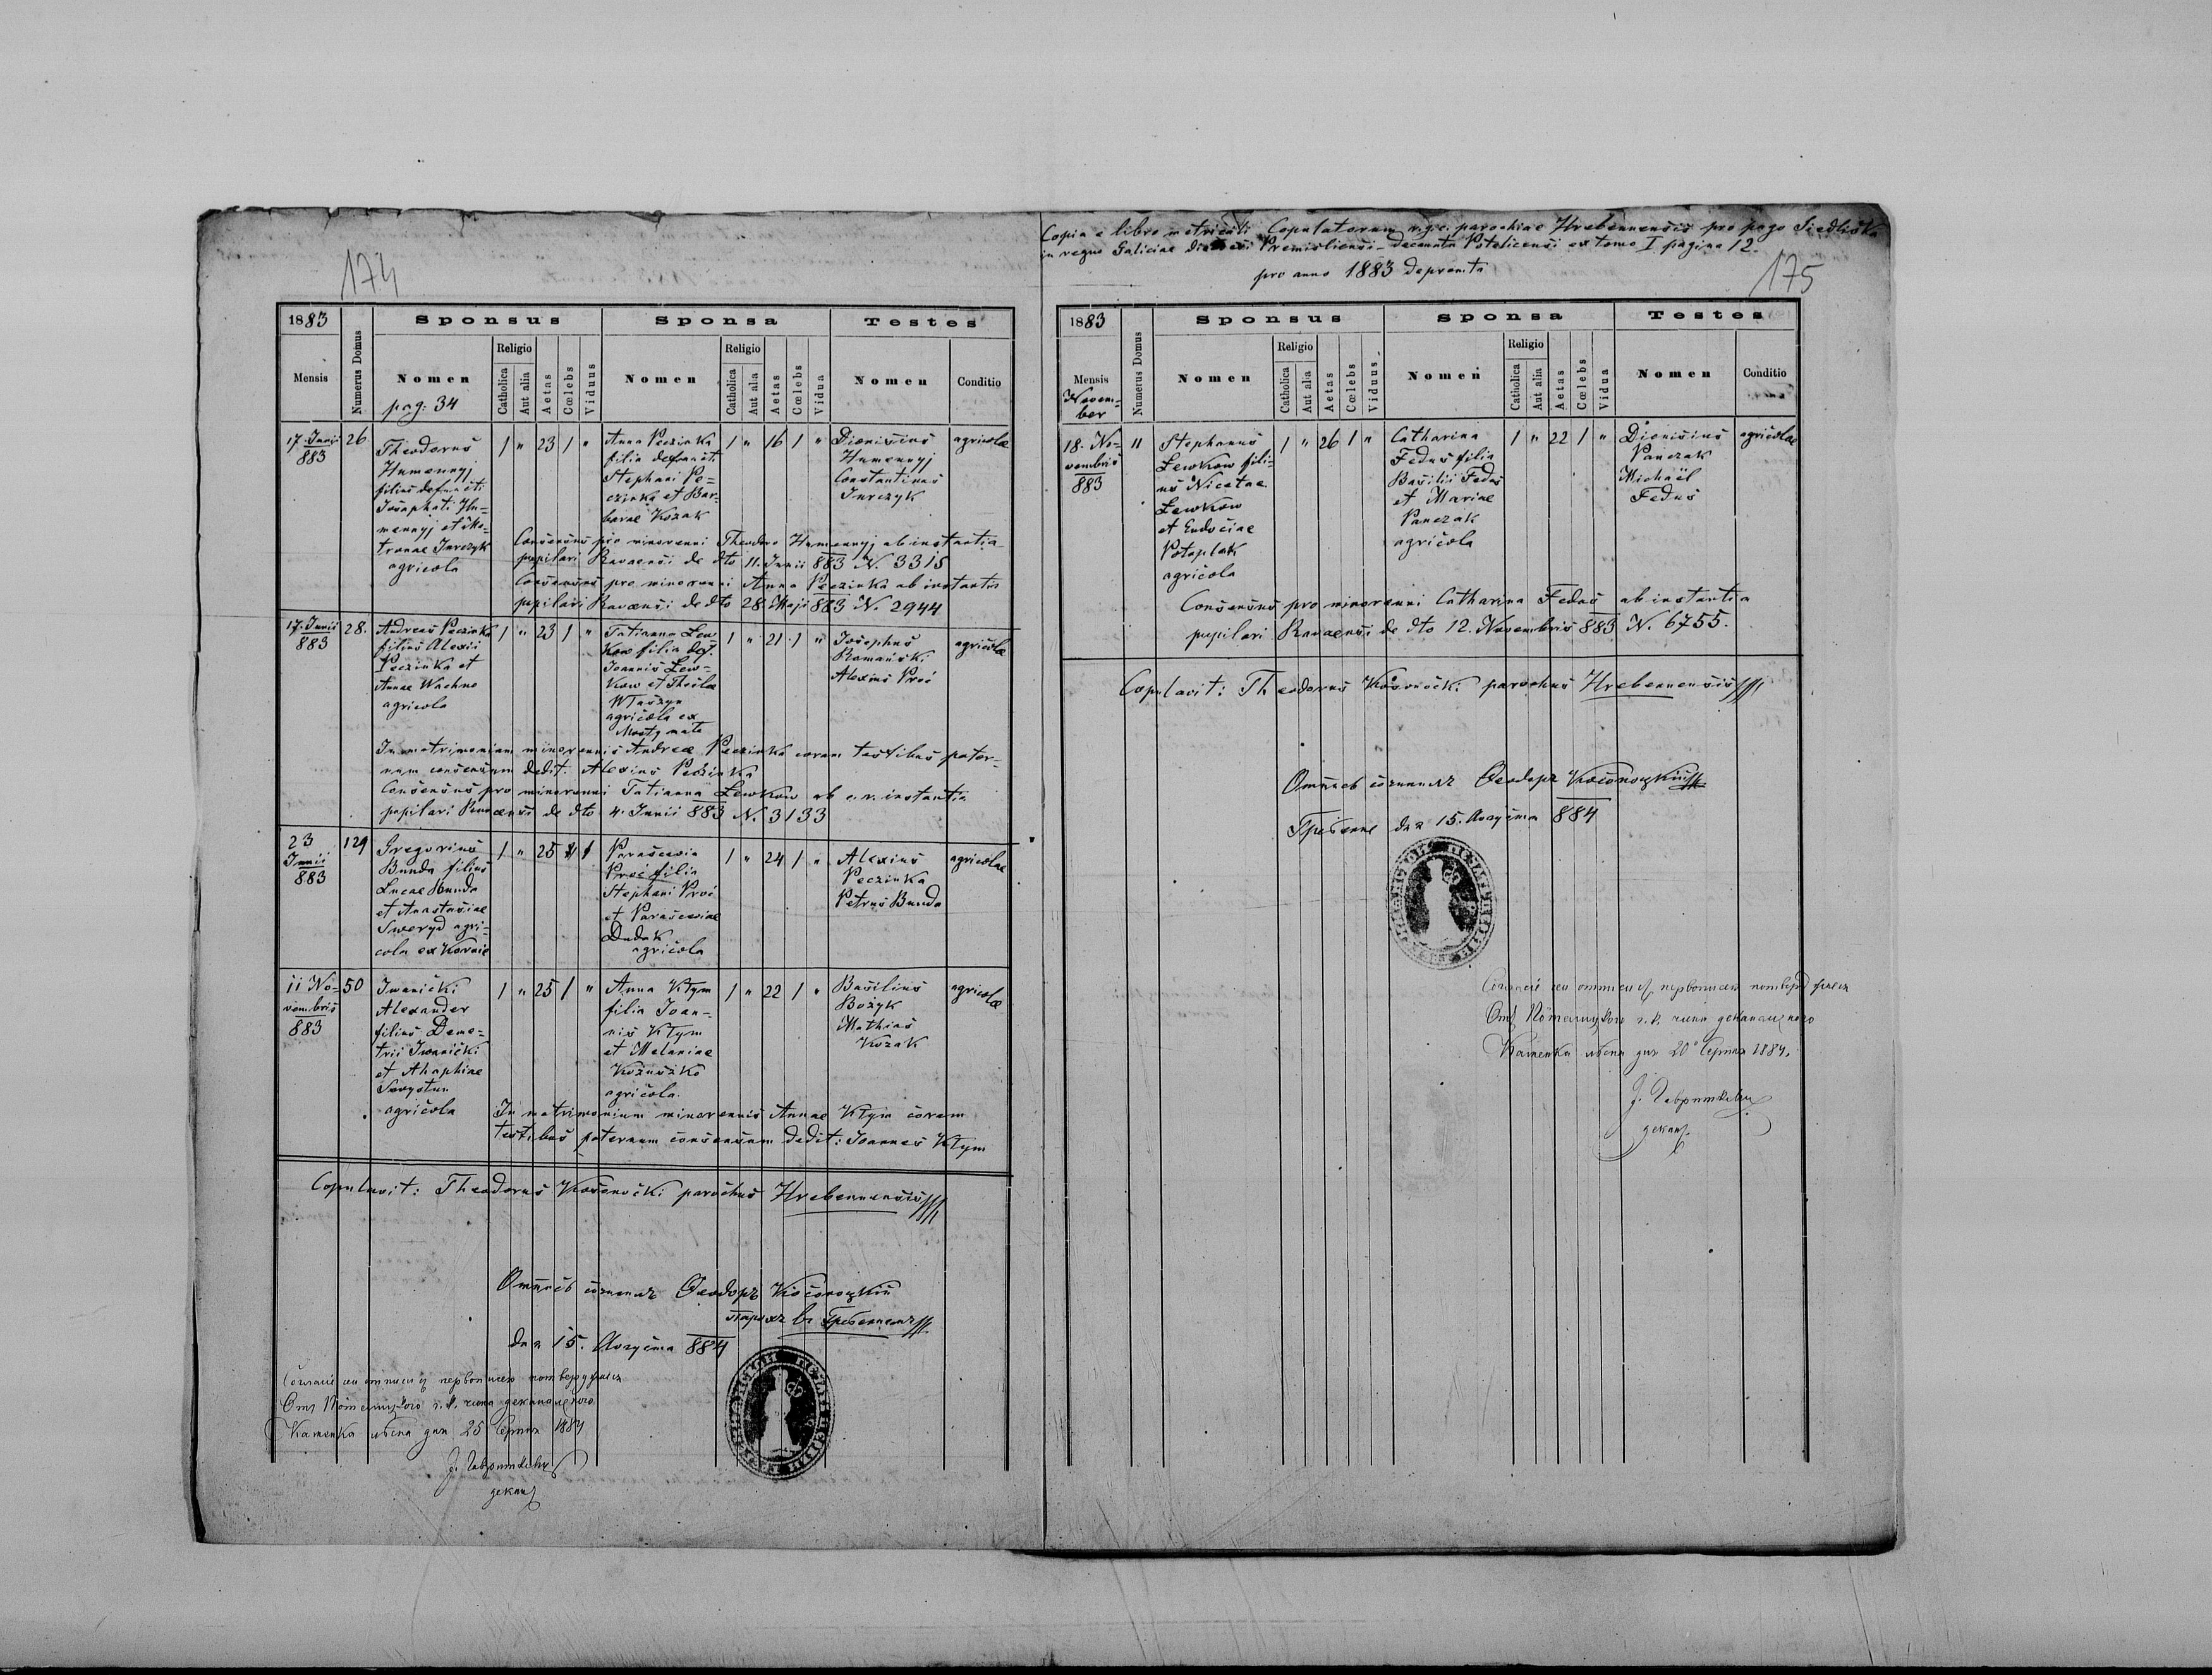 174
1883 Sponsus Sponsa Testes
Mensis Numerus Domus Nomen Religio Catholica Aut alia Aetas Cœlebs Viduus Nomen Religio Catholica Aut alia Aetas Cœlebs Vidua Nomen Conditio
pag: 34
17. Junii 883 26
Theodorus
Humennyj
filius defuncti
Josaphati Hu-
mennyj et Ma-
tronae Jurczyk
agricola
1 " 23 1 "
Anna Peczinka
filia defuncti
Stephani Pe=
czinka et Bar-
barae Kozak
1 " 16 1 "
Dionisius
Humennyj
Constantinus
Jurczyk
agricolae
Consensus pro minorenni Theodoro Humennyj ab instantia
pupilari Ravaensi de dto 11. Junii 883 N. 3315
Consensus pro minorenni Anna Peczinka ab instantia
pupilari Ravaensi de dto 28. Maji 883 N. 2944
17. Junii 883 28.
Andreas Peczinka
filius Alexii
Peczinka et
Annae Wachno
agricola
1 " 23 1 "
Tatianna Lew
kow filia def.
Joannis Lew-
kow et Theclae
agricola ex
Mosty male
1 " 21 1 "
Josephus
Romanski
Alexius Proć
agricolae
In matrimonium minorennis Andreae Peczinka coram testibus pater-
num consensum dedit: Alexius Peczinka
Consensus pro minorenni Tatianna Lewkow ab c.r. instantia
pupilari Ravaensi de dto 4. Junii 883 N. 3133
23 Junii 883 129
Gregorius
Bunda filius
Lucae Bunda
et Anastasiae
Sweryd agri-
cola ex Kornie
1 " 25 1
Parascevia
Proć filia
Stephani Proć
et Parasceviae
Dudok
agricola
1 " 24 1 "
Alexius
Peczinka
Petrus Bunda
agricolae
11 No-
vembris
883 50
Iwanicki
Alexander
filius Deme-
trii Iwanicki
et Ahaphiae
agricola
1 " 25 1 "
Anna Kłym
filia Joan-
nis Kłym
et Melaniae
Kożuszko
agricola.
1 " 22 1 "
Basilius
Bożyk
Mathias
Kozak
agricolae
In matrimonium minorennis Annae Kłym coram
testibus paternum consensum dedit: Joannes Kłym
Copulavit: Theodorus Kosonocki parochus Hrebennensis
Ѳеодоръ Косоноцкій
парохъ въ Гребенномъ
дня 15. Августа 884
Каменка дня 25 Серпня 1884
декан
Copia e libro metricali Copulatorum r.g.c. parochiae Hrebennensis pro pago Siedliska
in regno Galiciae dioecesi Premisliensi decanatu Potelicensi ex tomo I pagina 12.
pro anno 1883 depromta
175
1883 Sponsus Sponsa Testes
Mensis Numerus Domus Nomen Religio Catholica Aut alia Aetas Cœlebs Viduus Nomen Religio Catholica Aut alia Aetas Cœlebs Vidua Nomen Conditio
Novem-
ber
18. No-
vembris
883 11
Stephanus
Lewkow fili-
us Nicetae
Lewkow
et Eudociae
Potoplak
agricola
1 " 26 1 "
Catharina
Fedus filia
Basilii Fedus
et Mariae
Panczak
agricola
1 " 22 1 "
Dionisius
Panczak
Michaël
Fedus
agricolae
Consensus pro minorenni Catharina Fedus ab instantia
pupilari Ravaensi de dto 12. Novembris 883 N. 6755.
Copulavit: Theodorus Kosonocki parochus Hrebennensis
Ѳеодоръ Косоноцкій
Гребенне дня 15. Августа 884
Каменка дня 20 Серпня 1884.
декан